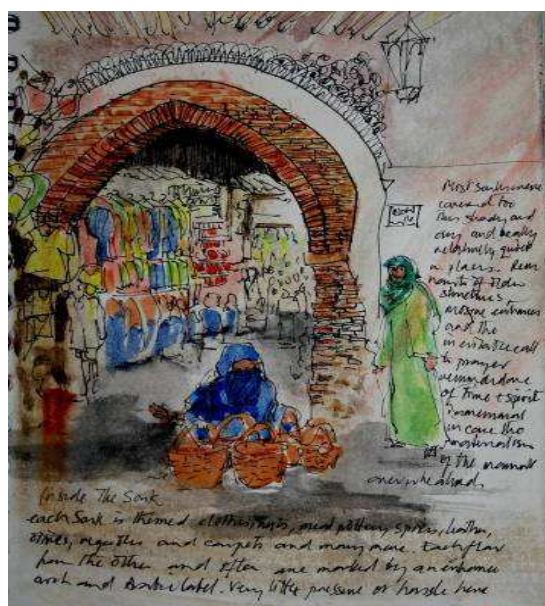 Most souks were
covered too
thus shady and
dry and really
relatively quiet
in places. Rem
nants of older
structures
mosque entrances
and the
inevitable call
to prayer
remind one
of time & spirit
in case the
of the
overwhelmed
Inside The Souk
each Souk is themed clothing, meat, pottery, spices, leather,
olives, and carpets and many more. Each
from the other and often are marked by an entrance
arch and Arabic label. Very little pressure or hassle here